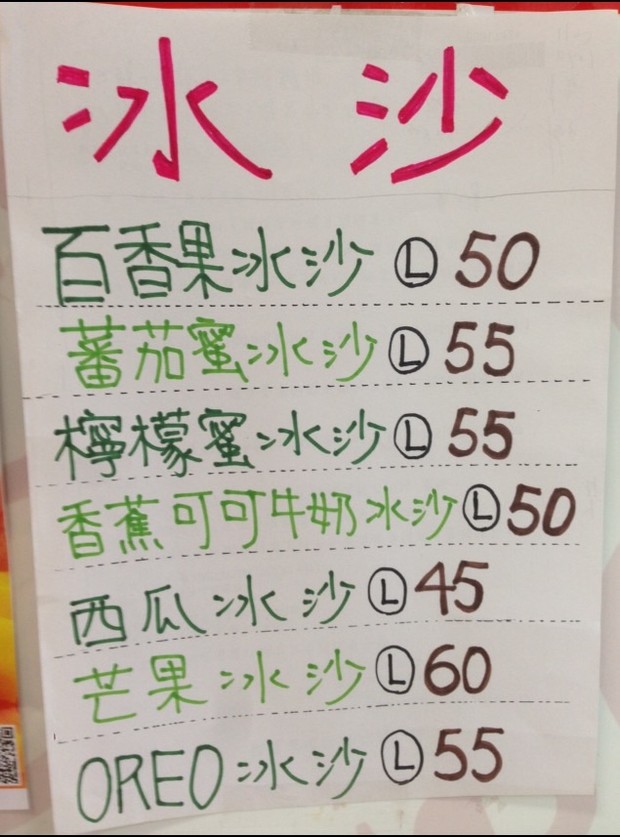 冰沙
百香果冰沙 Ⓛ 50
蕃茄蜜冰沙 Ⓛ 55
檸檬蜜冰沙 Ⓛ 55
香蕉可可牛奶冰沙 Ⓛ 50
西瓜冰沙 Ⓛ 45
芒果冰沙 Ⓛ 60
OREO冰沙 Ⓛ 55